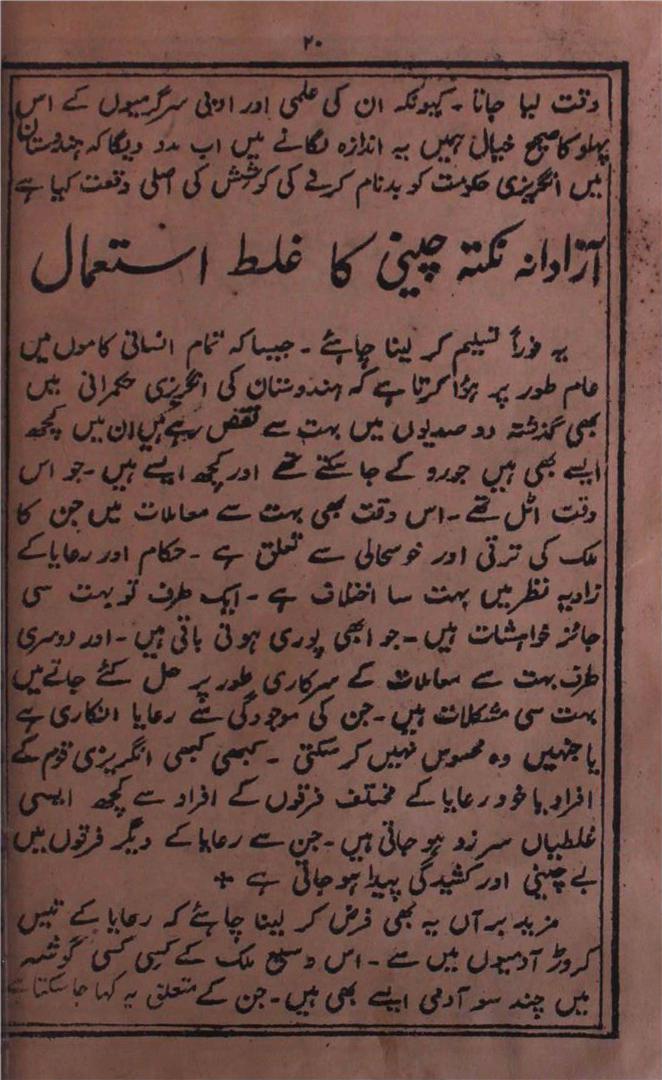 ۲۰
وقت لیا جانا ۔ کیونکہ ان کی علمی اور ادبی سرگرمیوں کے اس
پہلو کا صحیح خیال ہمیں یہ اندازہ لگانے میں اب مدد دیگا کہ ہندوستان
میں انگریزی حکومت کو بدنام کرنے کی کوشش کی اصلی وقعت کیا ہے
آزادانہ نکتہ چینی کا غلط استعمال
یہ فوراً تسلیم کر لینا چاہئے ۔ جیسا کہ تمام انسانی کاموں میں
عام طور پر ہؤا کرتا ہے کہ ہندوستان کی انگریزی حکمرانی میں
بھی گذشتہ دو صدیوں میں بہت سے نقص رہے ہیں ان میں کچھ
ایسے بھی ہیں جو روکے جا سکتے تھے اور کچھ ایسے ہیں ۔ جو اس
وقت اٹل تھے ۔ اس وقت بھی بہت سے معاملات میں جن کا
ملک کی ترقی اور خوشحالی سے تعلق ہے ۔ حکام اور رعایا کے
زاویہ نظر میں بہت سا اختلاف ہے ۔ ایک طرف تو بہت سی
جائز خواہشات ہیں ۔ جو ابھی پوری ہونی باقی ہیں ۔ اور دوسری
طرف بہت سے معاملات کے سرکاری طور پر حل کئے جانے میں
بہت سی مشکلات ہیں ۔ جن کی موجودگی سے رعایا انکاری ہے
یا جنہیں وہ محسوس نہیں کر سکتی ۔ کبھی کبھی انگریزی قوم کے
افراد یا خود رعایا کے مختلف فرقوں کے افراد سے کچھ ایسی
غلطیاں سرزد ہو جاتی ہیں ۔ جن سے رعایا کے دیگر فرقوں میں
بے چینی اور کشیدگی پیدا ہو جاتی ہے +
مزید برآں یہ بھی فرض کر لینا چاہئے کہ رعایا کے تیس
کروڑ آدمیوں میں سے ۔ اس وسیع ملک کے کسی کسی گوشہ
میں چند سو آدمی ایسے بھی ہیں ۔ جن کے متعلق یہ کہا جا سکتا ہے